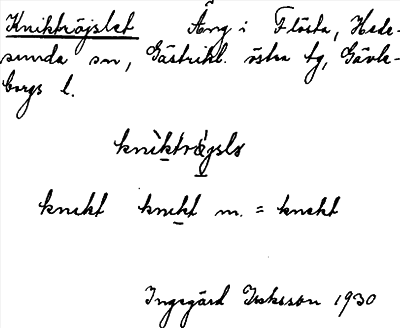 Kniktröjslet Äng i Flösta, Hede-
sunda sn, Gästrikl. östra tg, Gävle-
borgs l.
kniktrøgslə
knekt knekt m. = knekt
Ingegärd Isaksson 1930